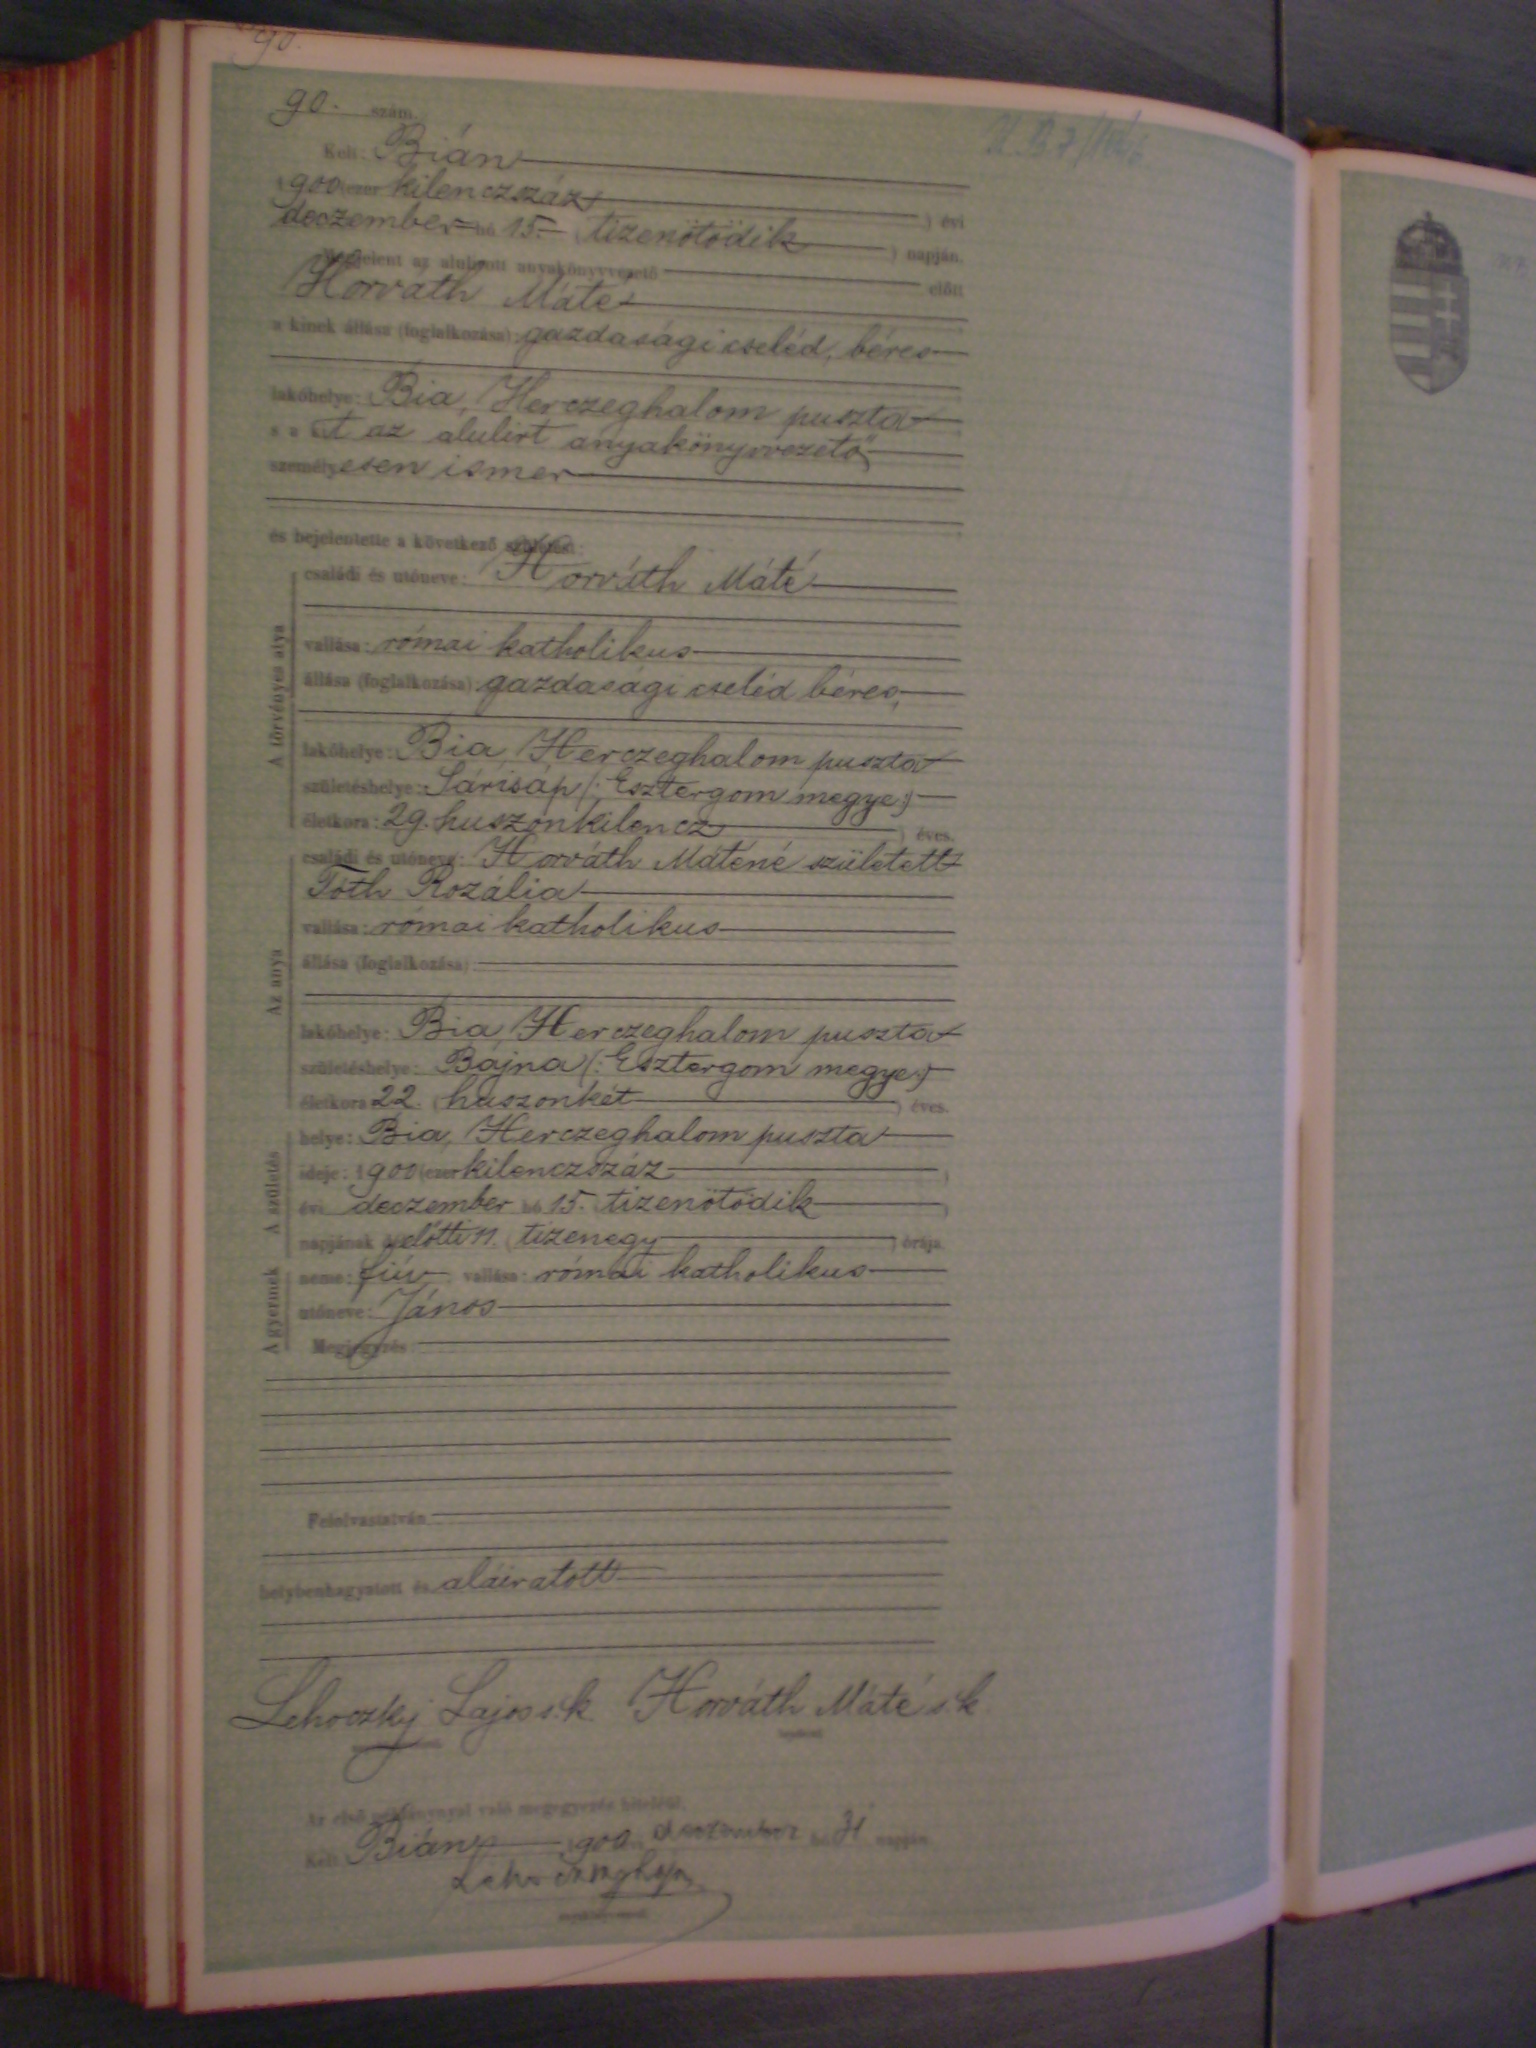 90.
90. szám.
Kelt: Bián
1900 (ezer kilenczszáz ) évi
deczember hó 15. ( tizenötödik ) napján.
Megjelent az alulirott anyakönyvvezető előtt
Horváth Máté
a kinek állása (foglalkozása): gazdasági cseléd, béres
lakóhelye: Bia, Herczeghalom puszta
s a kit az alulirt anyakönyvvezető
személyesen ismer
és bejelentette a következő születést:
A törvényes atya
családi és utóneve: Horváth Máté
vallása: római katholikus
állása (foglalkozása): gazdasági cseléd béres,
lakóhelye: Bia, Herczeghalom puszta
születéshelye: Sárisáp (: Esztergom megye:)
életkora: 29. huszonkilencz ) éves.
Az anya
családi és utóneve: Horváth Máténé született
Tóth Rozália
vallása: római katholikus
állása (foglalkozása):
lakóhelye: Bia, Herczeghalom puszta
születéshelye: Bajna (: Esztergom megye:)
életkora 22. ( huszonkét ) éves.
A születés
helye: Bia, Herczeghalom puszta
ideje: 1900 (ezer kilenczszáz )
évi deczember hó 15. tizenötödik )
napjának délelőtti 11. ( tizenegy ) órája.
A gyermek
neme: fiú vallása: római katholikus
utóneve: János
Megjegyzés:
Felolvastatván
helybenhagyatott és aláiratott
Lehoczky Lajos s.k. Horváth Máté s.k.
bejelentő.
Az első példánynyal való megegyezés hiteléül.
Kelt Bián 1900. deczember hó 31 napján.
anyakönyvvezető.